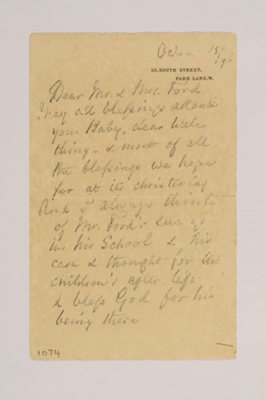 Oct 15/96
10, SOUTH STREET,
PARK LANE, W.
Dear Mr. & Mrs. Ford
May all blessings attend
your Baby, dear little
thing - & most of all
the blessings we hope
for at its christening
And I always think
of Mr. Ford's
in his School & his
care & thought for the
children's after life
& bless God for his
being there
1074